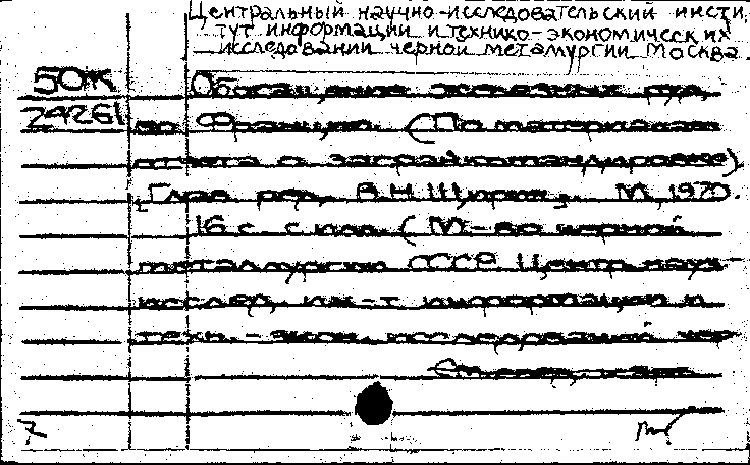 Центральный научно-исследовательский инсти
тут информации и технико-экономических
исследований черной металургии Москва.
50К Обогащение железных руд
24261 во Франции. (По материалам
отчета о загранкомандировке).
[Глав. ред. В.Н. М., 1970.
16 с. с ил. (М-во черной
металлургии СССР. Центр. науч-
исслед. ин-т информации и
техн.-экон. исследований чер
См. след. карт.